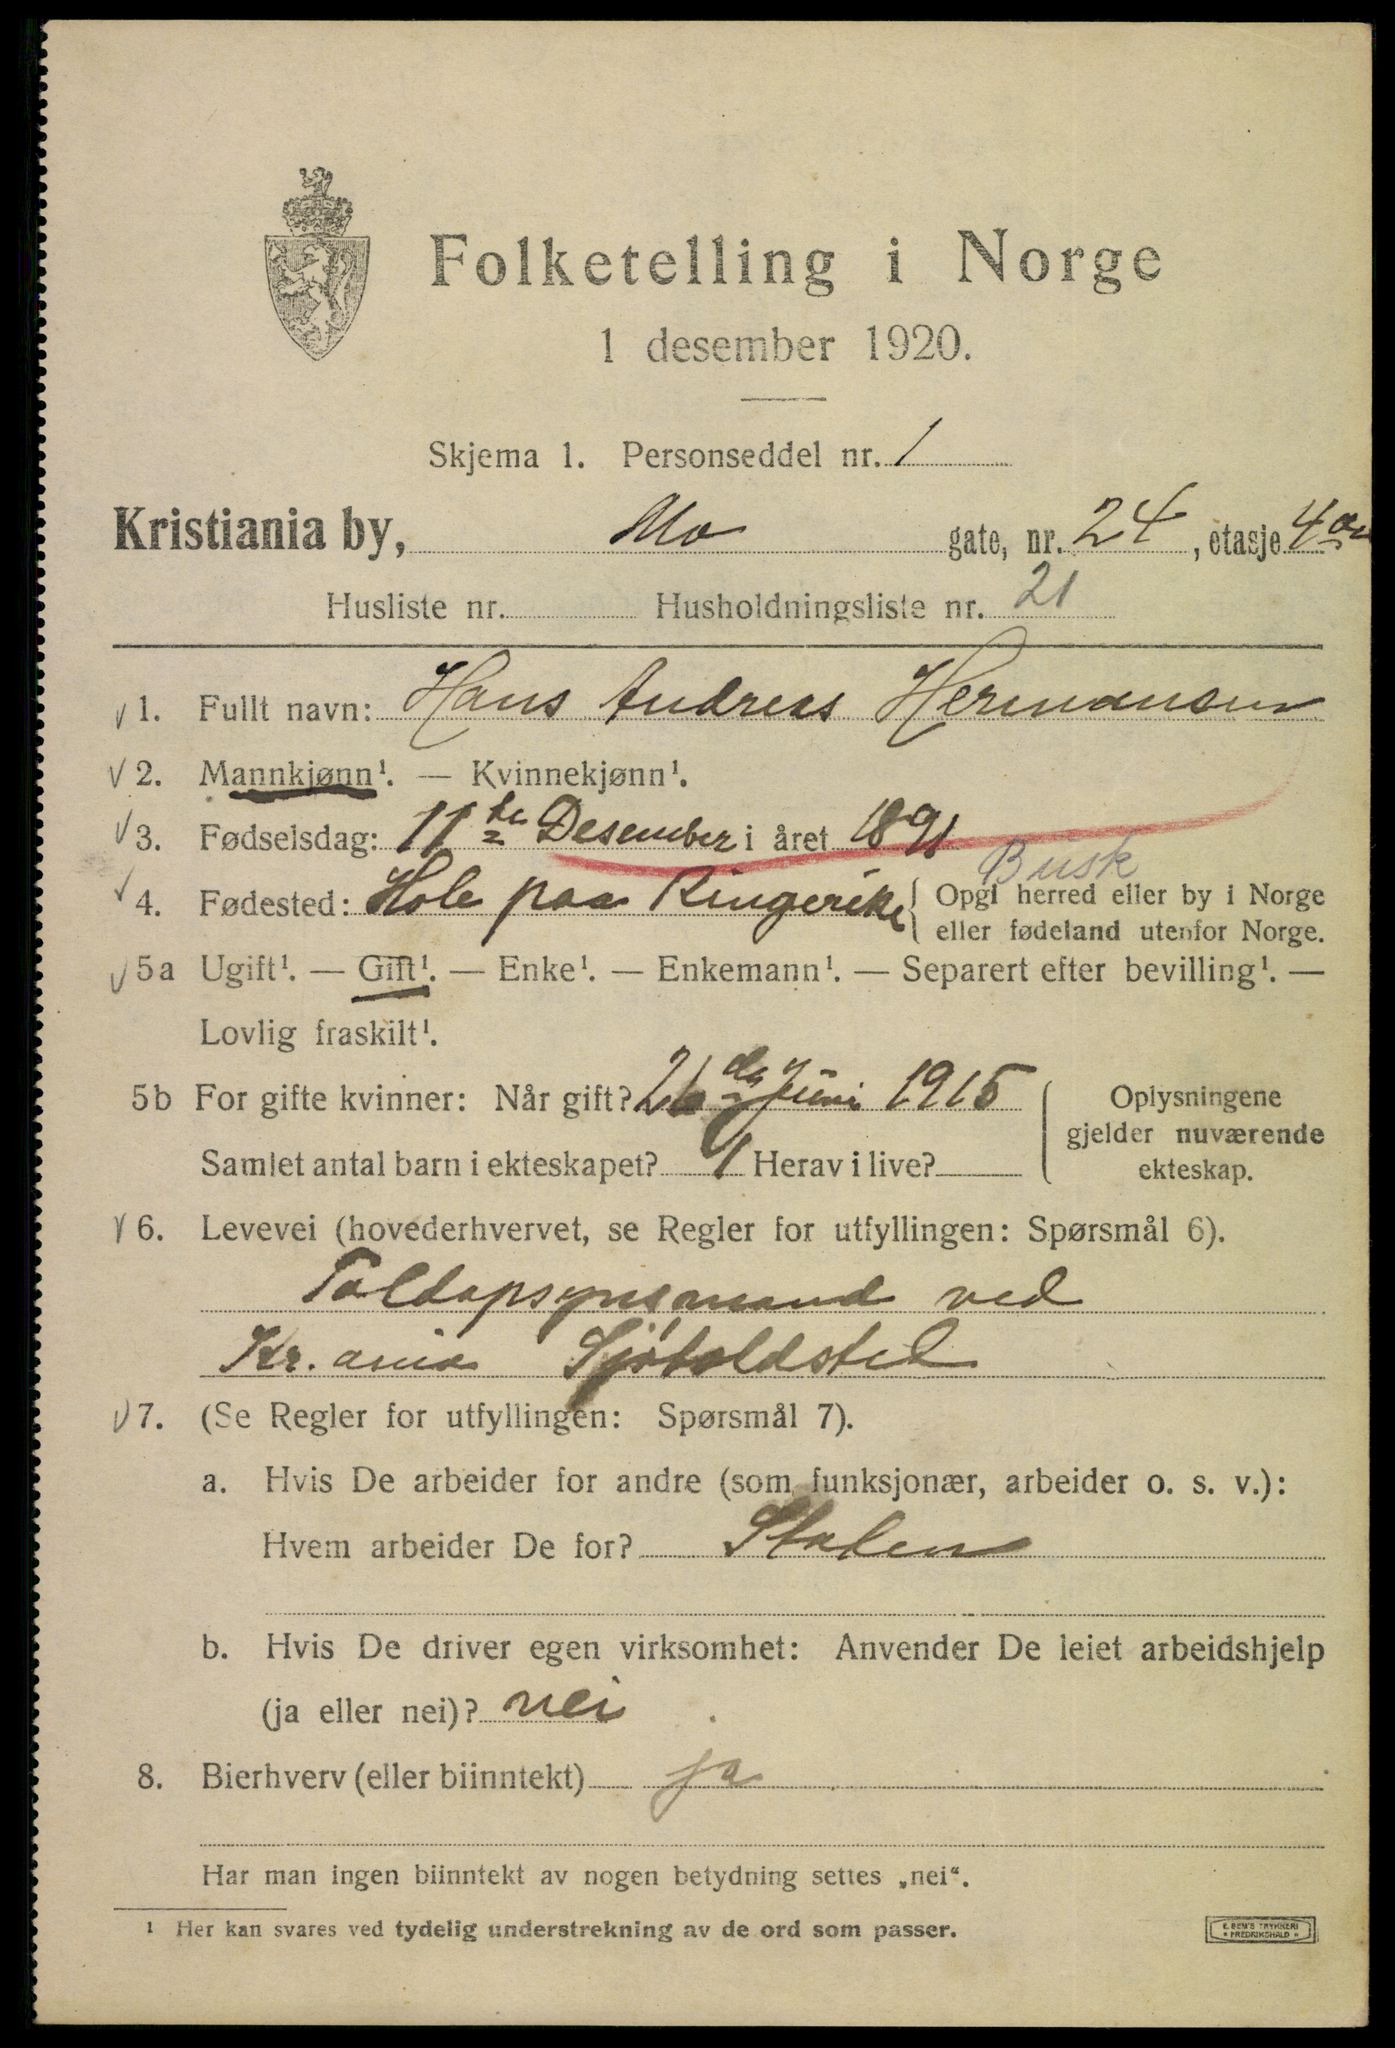 Folketelling i Norge
1 desember 1920.
Skjema 1. Personseddel nr. 1
Kristiania by, Mo gate, nr. 24, etasje 4
Husliste nr. Husholdningsliste nr. 21
1. Fullt navn: Hans Andreas Hermansen
2. Mannkjønn¹. — Kvinnekjønn¹.
3. Fødselsdag: 11te Desember i året 1891
Busk
4. Fødested: Hole paa Ringerike { Opgi herred eller by i Norge
eller fødeland utenfor Norge.
5a Ugift¹. — Gift¹. — Enke¹. — Enkemann¹. — Separert efter bevilling¹. —
Lovlig fraskilt¹.
5b For gifte kvinner: Når gift? 26 Juni 1915
Samlet antal barn i ekteskapet? 1 Herav i live?
Oplysningene
gjelder nuværende
ekteskap.
6. Levevei (hovederhvervet, se Regler for utfyllingen: Spørsmål 6).
Toldopsynsmand ved
Kr.ania Sjøtoldsted
7. (Se Regler for utfyllingen: Spørsmål 7).
a. Hvis De arbeider for andre (som funksjonær, arbeider o. s. v.):
Hvem arbeider De for? Staten
b. Hvis De driver egen virksomhet: Anvender De leiet arbeidshjelp
(ja eller nei)? nei
8. Bierhverv (eller biinntekt) ja
Har man ingen biinntekt av nogen betydning settes „nei“.
¹ Her kan svares ved tydelig understrekning av de ord som passer.
E. SEM'S TRYKKERI
FREDRIKSHALD